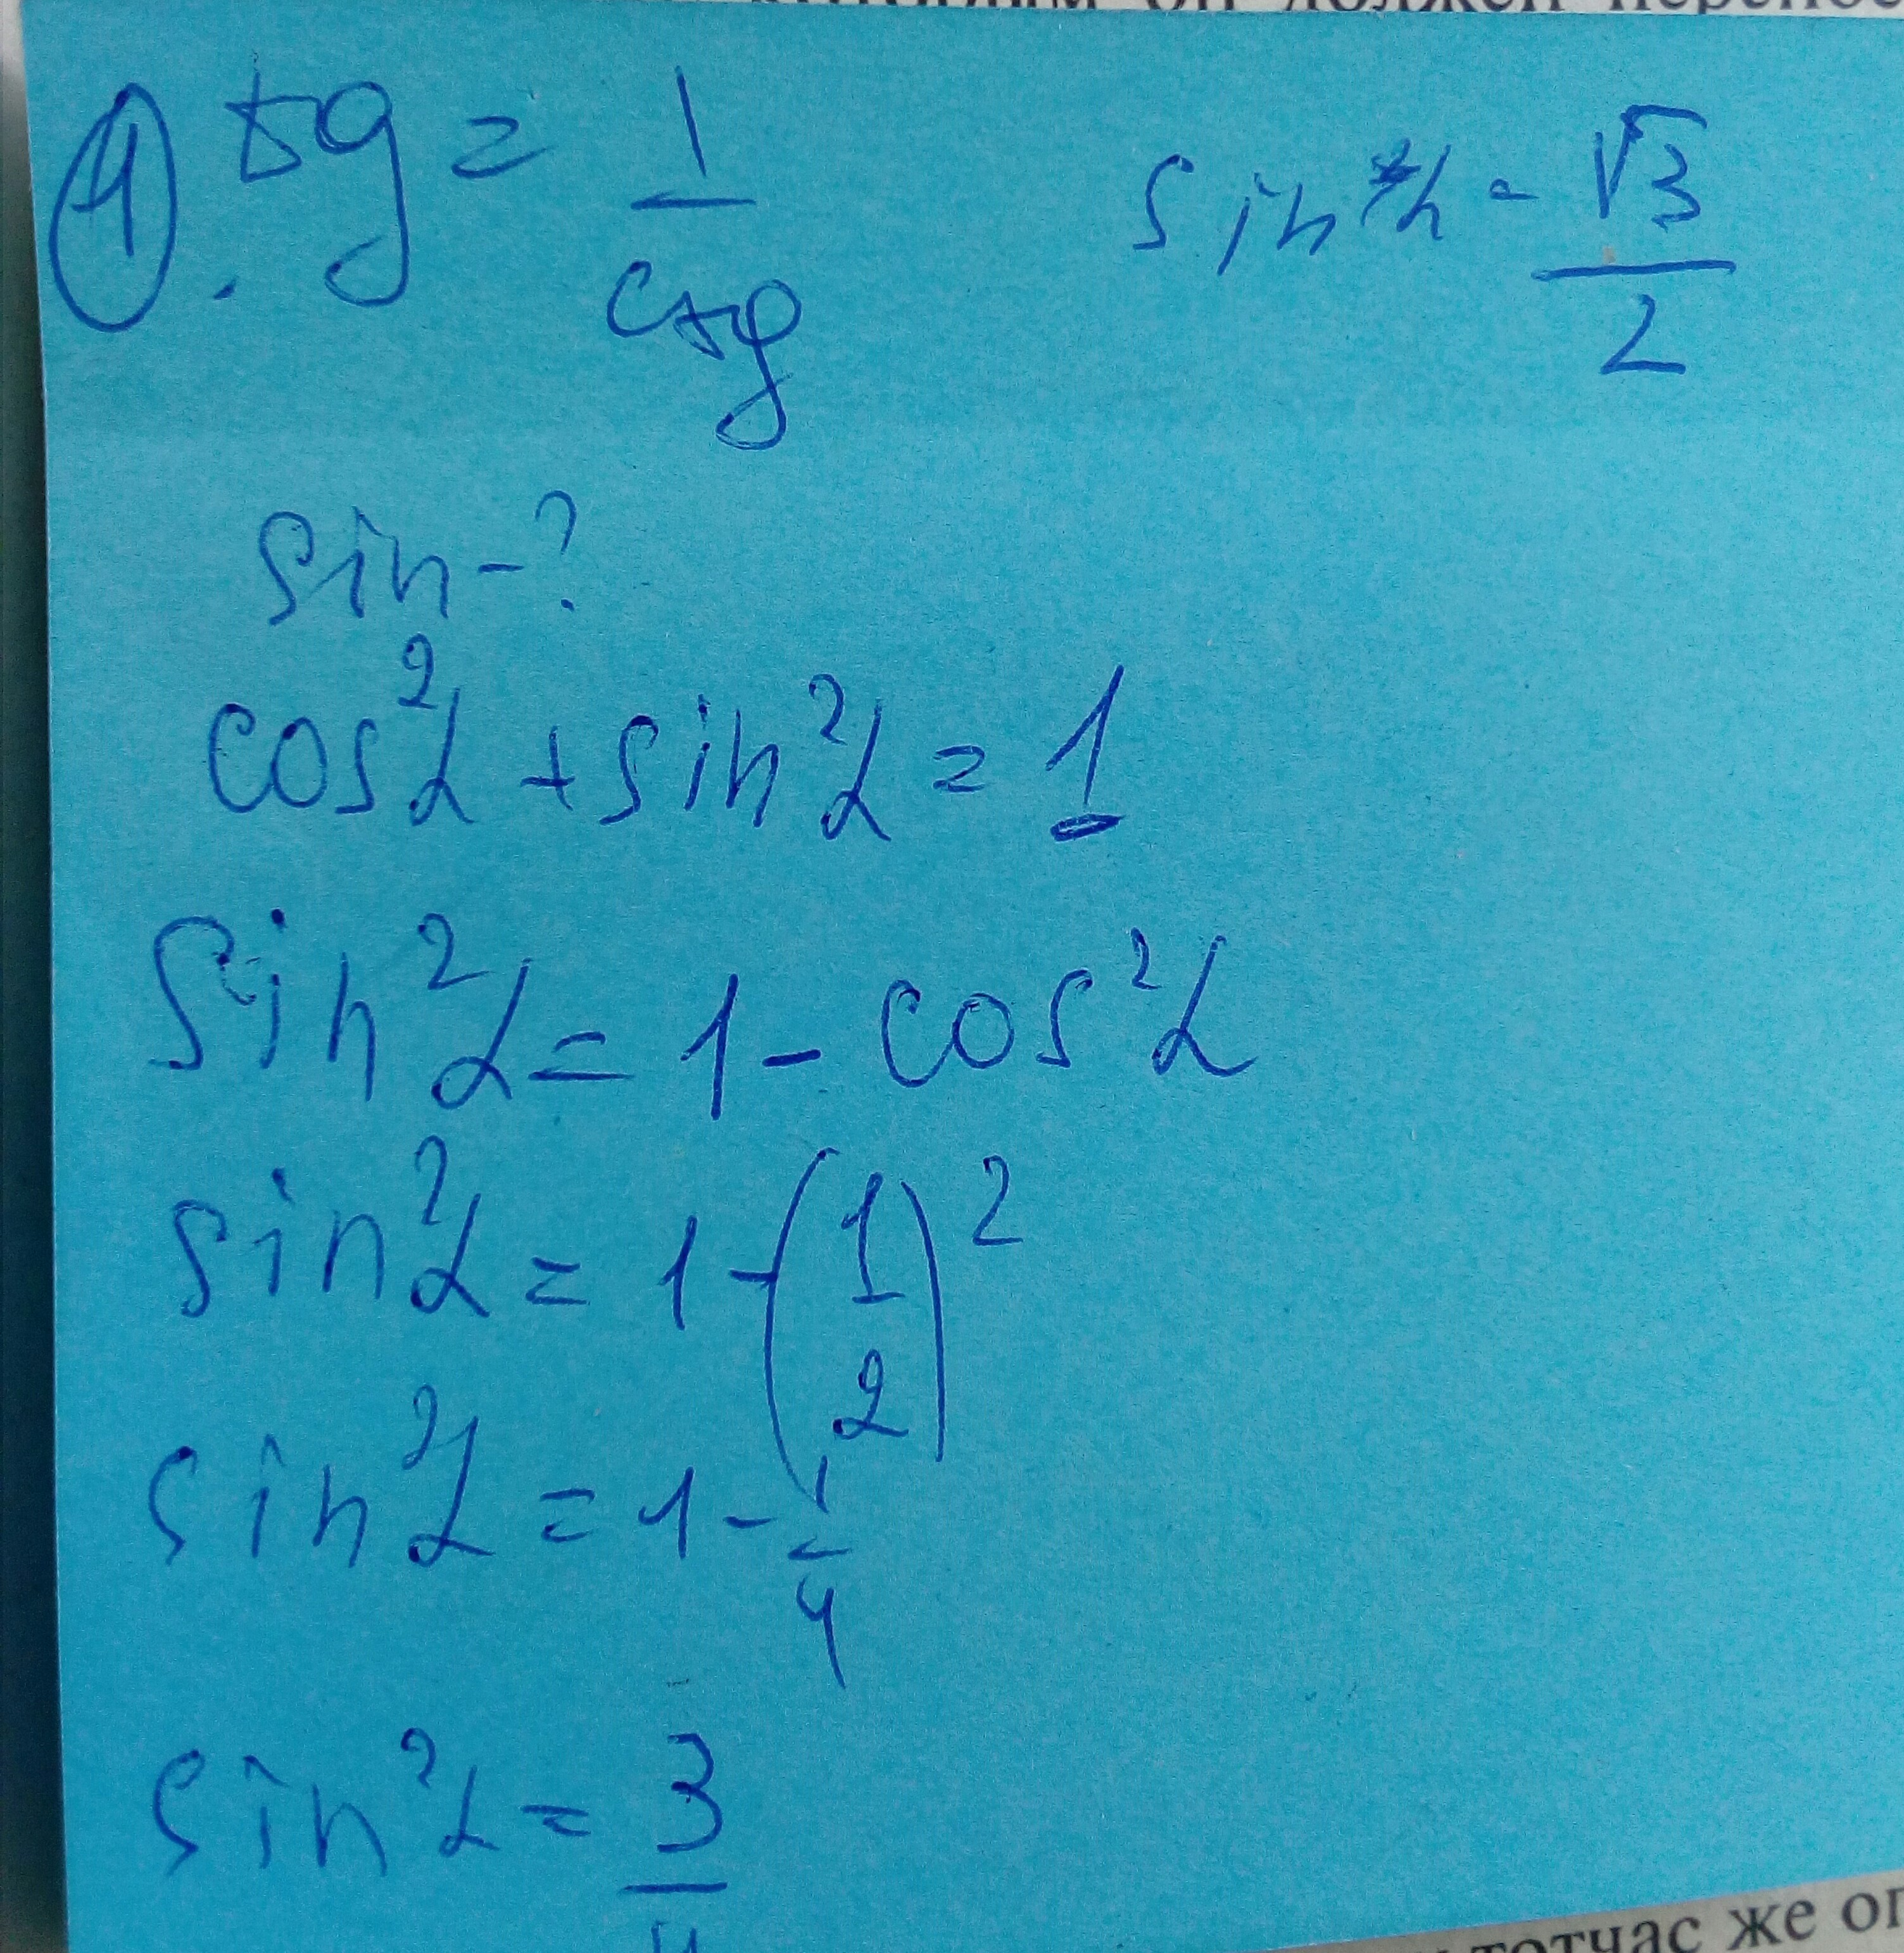 которым он должен
4. tg = 1/ctg
sin α = √3/2
sin - ?
cos²α + sin²α = 1
sin²α = 1 - cos²α
sin²α = 1 - (1/2)²
sin²α = 1 - 1/4
sin²α = 3/4
тотчас же